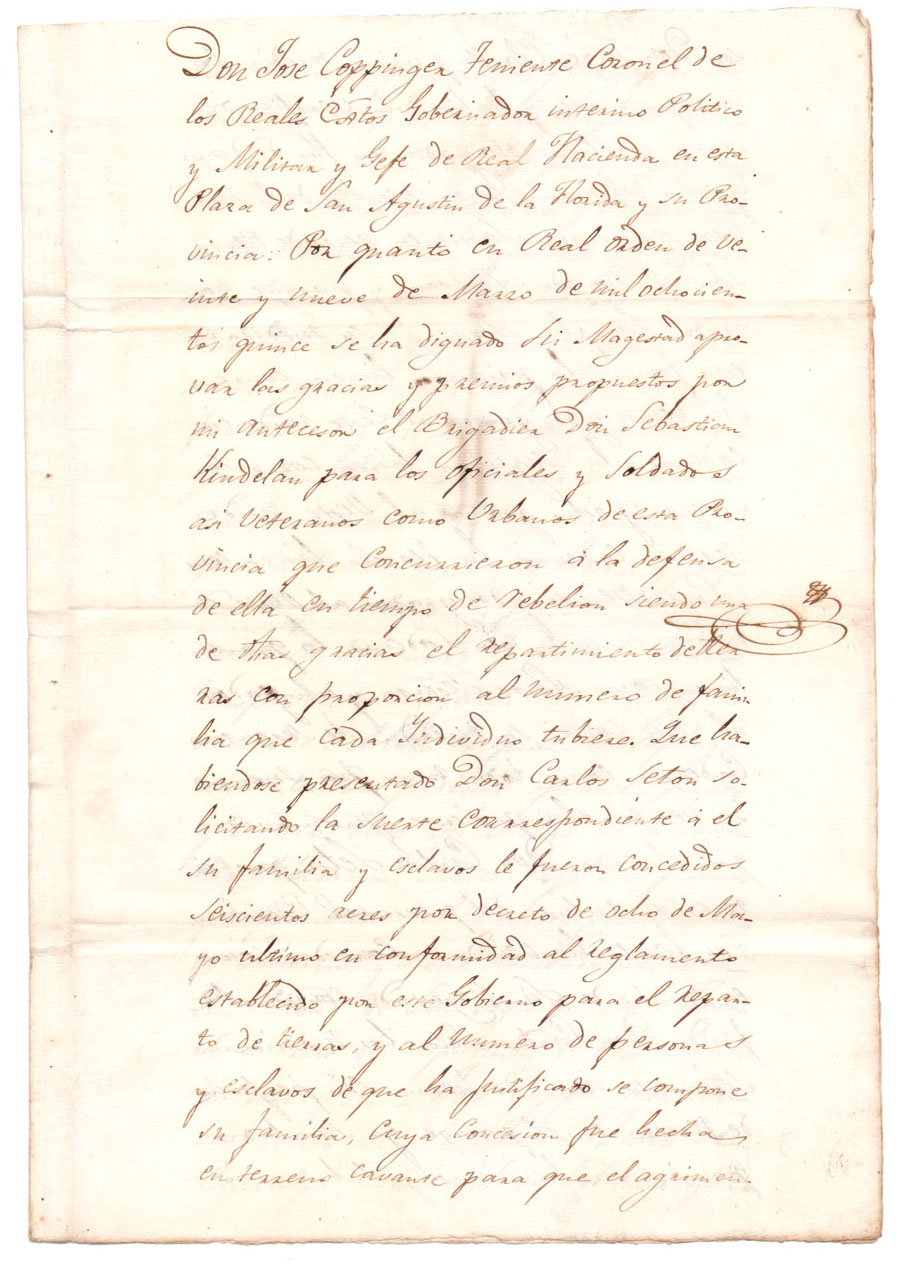 Don Jose Coppinger Teniente Coronel de
los Reales Extos Gobernador interino Politico
y Militar y Gefe de Real Hacienda en esta
Plaza de San Agustin de la Florida y su Pro-
vincia: Por quanto en Real orden de ve-
inte y nueve de Marzo de mil ochocien-
tos quince se ha dignado Su Magestad apro-
var las gracias y premios propuestos por
mi antecesor el Brigadier Don Sebastian
Kindelan para los oficiales y Soldados
asi Veteranos como Urbanos de esta Pro-
vincia que Concurrieron á la defensa
de ella en tiempo de rebelion siendo una
de dhas gracias el repartimiento de tier
ras con proporcion al Numero de fami-
lia que cada Individuo tubiere. Que ha-
biendose presentado Don Carlos Seton so-
licitando la suerte Correspondiente á el
su familia y esclavos le fueron concedidos
Seiscientos acres por decreto de ocho de Ma-
yo ultimo en conformidad al reglamento
establecido por este Gobierno para el repar-
to de tierras, y al Numero de personas
y esclavos de que ha justificado se compone
su familia, Cuya Concesion fue hecha
en terreno cavante para que el agrimen-